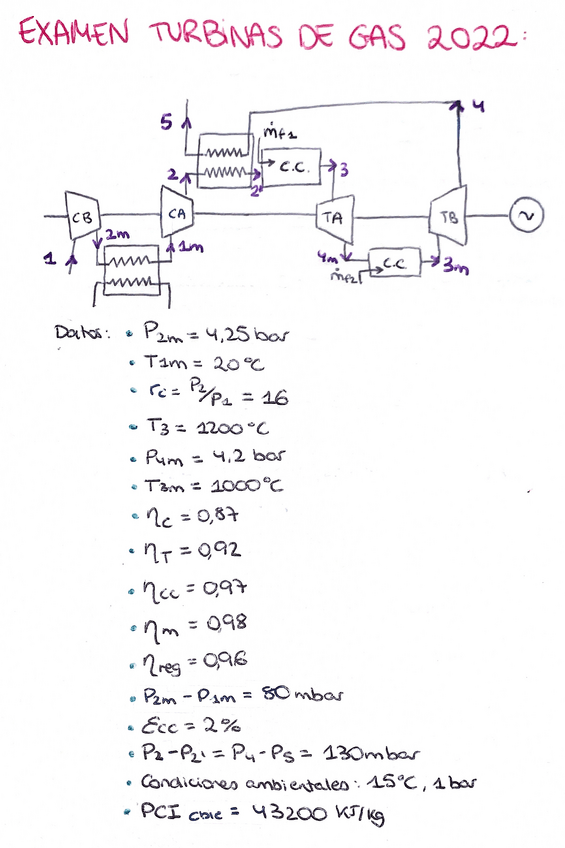 EXAMEN TURBINAS DE GAS 2022:
4
5
ṁf1
2
C.C.
3
2'
CB
CA
TA
TB
~
2m
1m
1
4m
C.C
3m
ṁf2
Datos: • P2m = 4,25 bar
• T1m = 20 °C
• rc = P2/P1 = 16
• T3 = 1200 °C
• P4m = 4,2 bar
• T3m = 1000 °C
• ηc = 0,87
• ηT = 0,92
• ηcc = 0,97
• ηm = 0,98
• ηreg = 0,96
• P2m - P1m = 80 mbar
• Ecc = 2%
• P2 - P2' = P4 - P5 = 130 mbar
• Condiciones ambientales: 15°C, 1 bar
• PCI cble = 43200 KJ/kg